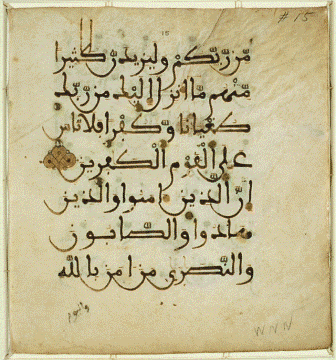 # 15
15
من ربكم وليزيدن كثيرا
منهم ما انزل اليك من ربك
طغيانا وكفرا فلا تاس
على القوم الكفرين
ان الذين امنوا والذين
هادوا والصابون
والنصرى من امن بالله